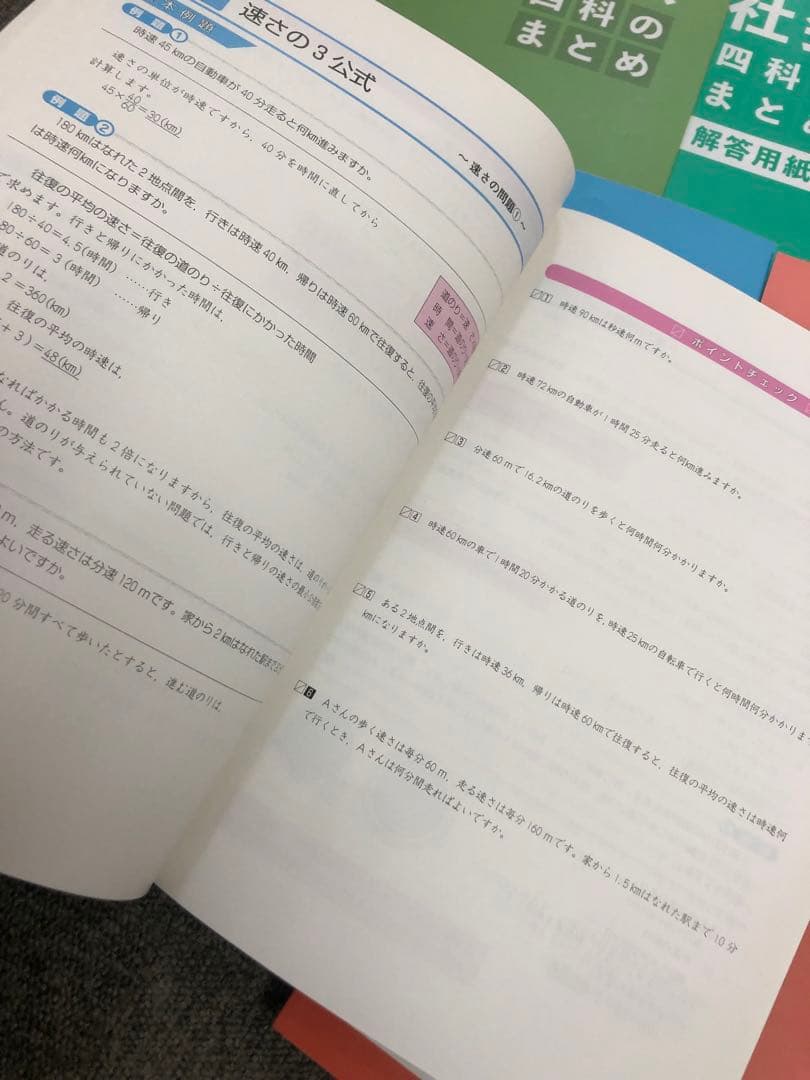 本例題
速さの3公式
～速さの問題①～
例題①
時速45kmの自動車が40分走ると何km進みますか。
速さの単位が時速ですから、40分を時間に直してから
計算します。
45×40/60=30(km)
例題②
180kmはなれた2地点間を、行きは時速40km、帰りは時速60kmで往復すると、往復の平均
は時速何kmになりますか。
往復の平均の速さ=往復の道のり÷往復にかかった時間
て求めます。行きと帰りにかかった時間は、
180÷40=4.5(時間) ……行き
80÷60=3(時間) ……帰り
道のりは、
2=360(km)
往復の平均の時速は、
+3)=48(km)
道のり=速さ
時間=道の
速さ=道の
なればかかる時間も2倍になりますから、往復の平均の速さは、道のり
ん。道のりが与えられていない問題では、行きと帰りの速さの最小公倍数
の方法です。
m、走る速さは分速120mです。家から2kmはなれた駅まで
よいですか。
20分間すべて歩いたとすると、進む道のりは、
ポイントチェック
1 時速90kmは秒速何mですか。
2 時速72kmの自動車が1時間25分走ると何km進みますか。
3 分速60mで16.2kmの道のりを歩くと何時間何分かかりますか。
4 時速60kmの車で1時間20分かかる道のりを、時速25kmの自転車で行くと何時間何分かかりま
5 ある2地点間を、行きは時速36km、帰りは時速60kmで往復すると、往復の平均の速さは時速何
kmになりますか。
6 Aさんの歩く速さは毎分60m、走る速さは毎分160mです。家から1.5kmはなれた駅まで10分
で行くとき、Aさんは何分間走ればよいですか。
四科の
まとめ
社
四科
まと
解答用紙